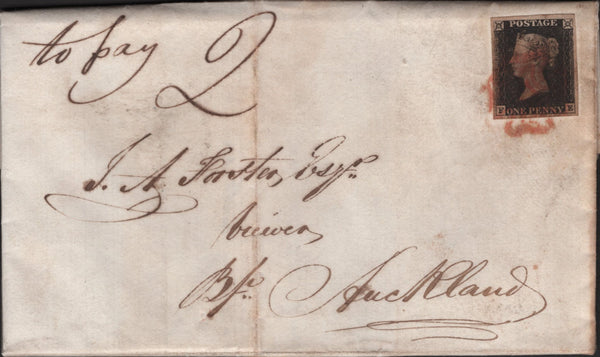 to pay 2
POSTAGE
E ONE PENNY E
J. A. Forster, Esqr.
Viewer
Bp. Auckland